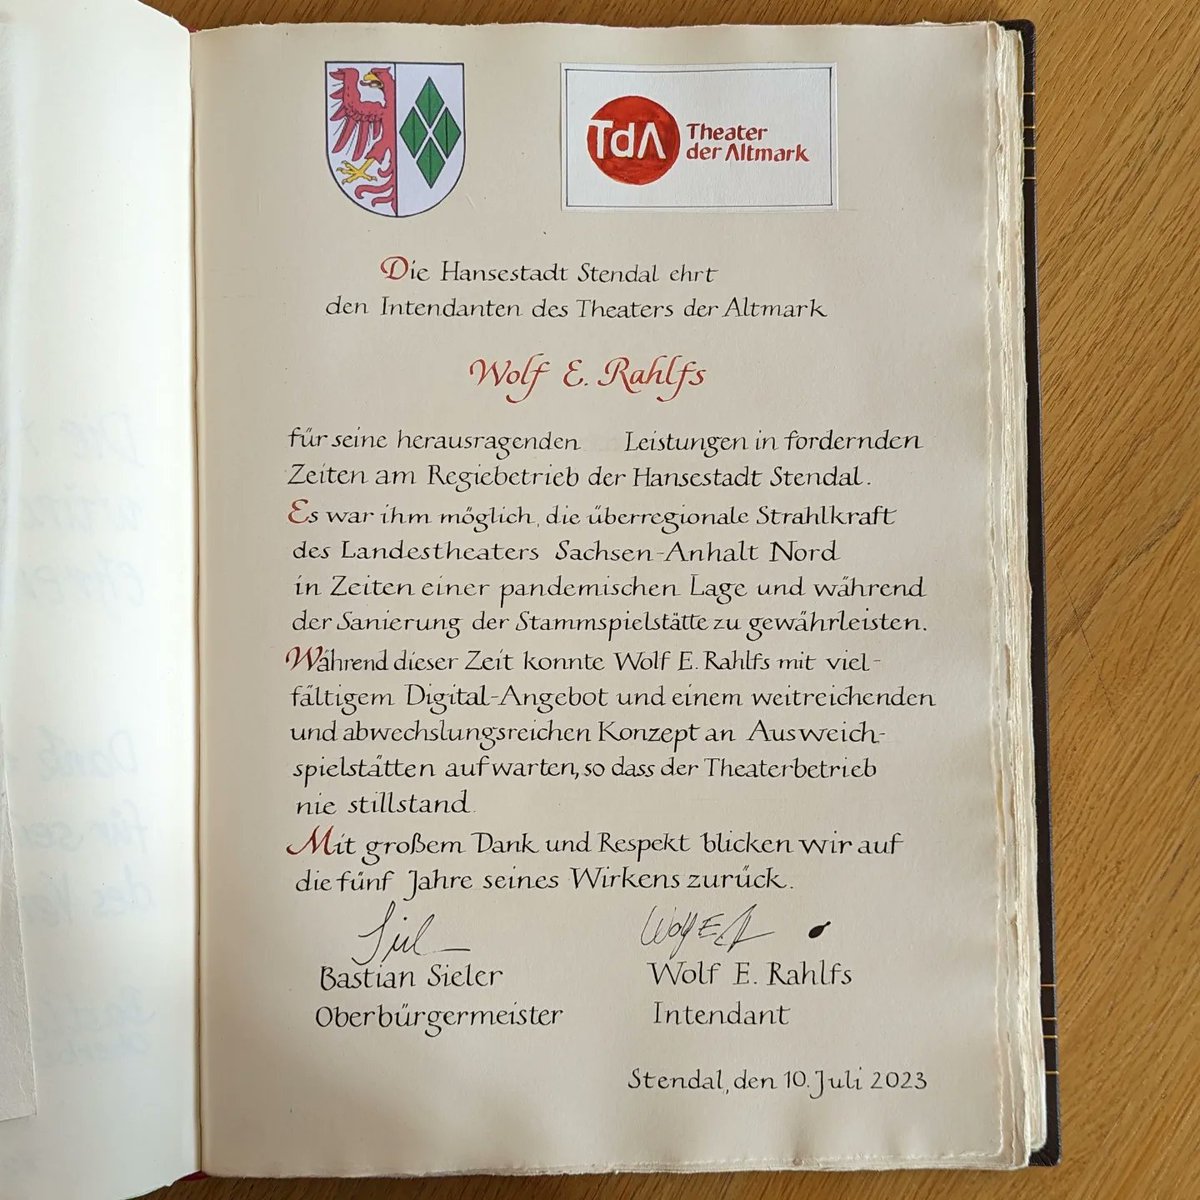 TdA Theater
der Altmark
Die Hansestadt Stendal ehrt
den Intendanten des Theaters der Altmark
Wolf E. Rahlfs
für seine herausragenden Leistungen in fordernden
Zeiten am Regiebetrieb der Hansestadt Stendal.
Es war ihm möglich, die überregionale Strahlkraft
des Landestheaters Sachsen-Anhalt Nord
in Zeiten einer pandemischen Lage und während
der Sanierung der Stammspielstätte zu gewährleisten.
Während dieser Zeit konnte Wolf E. Rahlfs mit viel-
fältigem Digital-Angebot und einem weitreichenden
und abwechslungsreichen Konzept an Ausweich-
spielstätten aufwarten, so dass der Theaterbetrieb
nie stillstand.
Mit großem Dank und Respekt blicken wir auf
die fünf Jahre seines Wirkens zurück.
Bastian Sieler
Wolf E. Rahlfs
Oberbürgermeister
Intendant
Stendal, den 10. Juli 2023